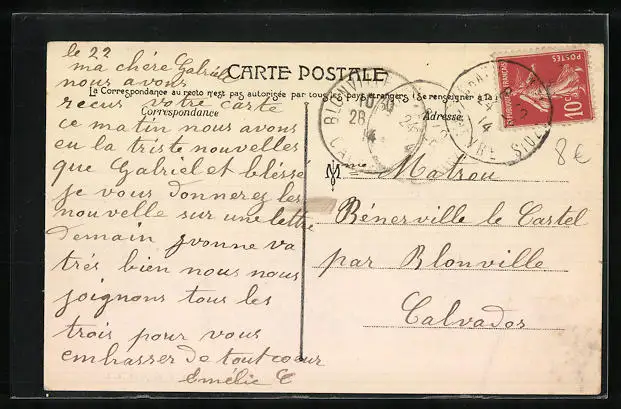 le 22
ma chère Gabriel
nous avons
recus votre carte
ce matin nous avons
eu la triste nouvelles
que Gabriel et bléssé
je vous donnerez les
nouvelle sur une lettre
demain yvonne va
trés bien nous nous
joignons tous les
trois pour vous
embrasser de tout coeur
Emélie C
CARTE POSTALE
La Correspondance au recto n'est pas autorisée par tous les pays étrangers (Se renseigner à la
Correspondance
Adresse
BLONVILLE
10 30
26
14
POSTES
REPUBLIQUE FRANÇAISE
10c
14
8€
Mme Matrou
Bénerville le Castel
par Blonville
Calvados